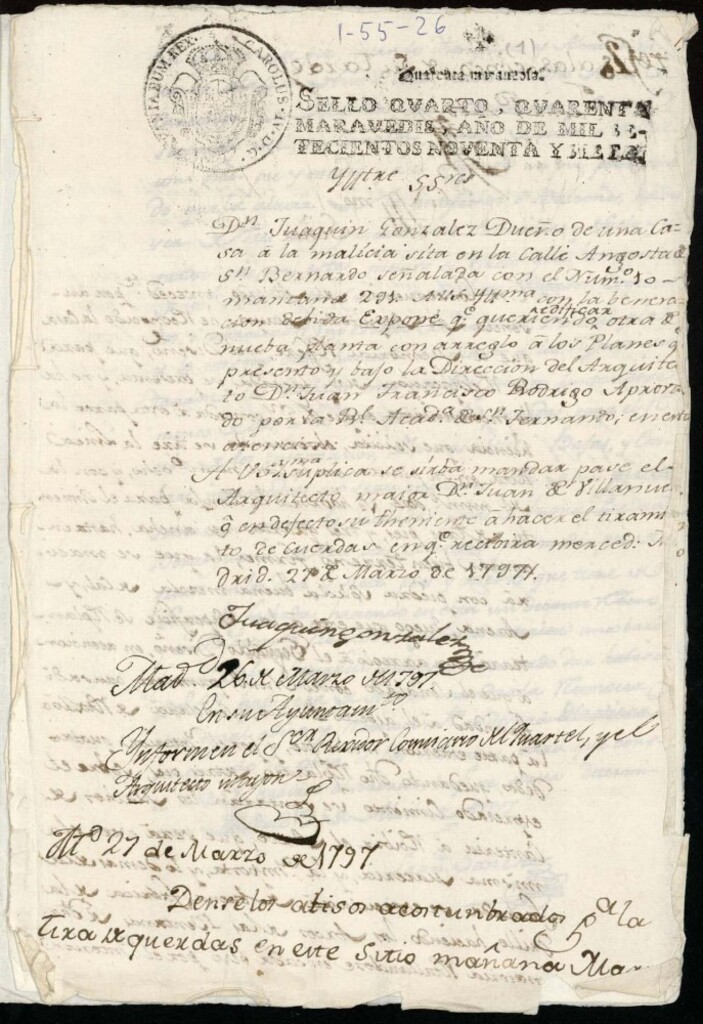 1-55-26
(1)
CAROLUS. IV. D. G.
HISPANIARUM REX.
Quarenta maravedis.
SELLO QVARTO, QVARENTA
MARAVEDIS, AÑO DE MIL SE-
TECIENTOS NOVENTA Y SIETE.
Yttre. SSres
Dn. Juaquin Gonzalez Dueño de una Ca-
sa à la malicia sita en la Calle Angosta de
Sn. Bernardo señalada con el Numo. 10
manzana 291. con la benera-
cion debida Expone qe. queriendo reedificar otra de
nueba planta con arreglo à los Planes qe.
presento y bajo la Direccion del Arquite-
cto Dn. Juan Francisco Rodrigo Aproba-
do por la Rl. Acada. de Sn. Fernando; en esta
atencion:
A V.S.Y. suplica se sirba mandar pase el
Arquitecto maior Dn. Juan de Villanueba
ô en defecto su theniente à hacer el tirami-
to de cuerdas en qe. recibira merced: Ma-
drid. 27 de Marzo de 1797.
Juaquin gonzalez
Madd. 26 de Marzo de 1797
En su Ayuntamto
Informen el Sor. Rexidor Comisario del Quartel, y el
Arquitecto mayor
Md 27 de Marzo de 1797
Dense los abisos acostunbrados pa. la
tira de querdas en este sitio mañana Mar-